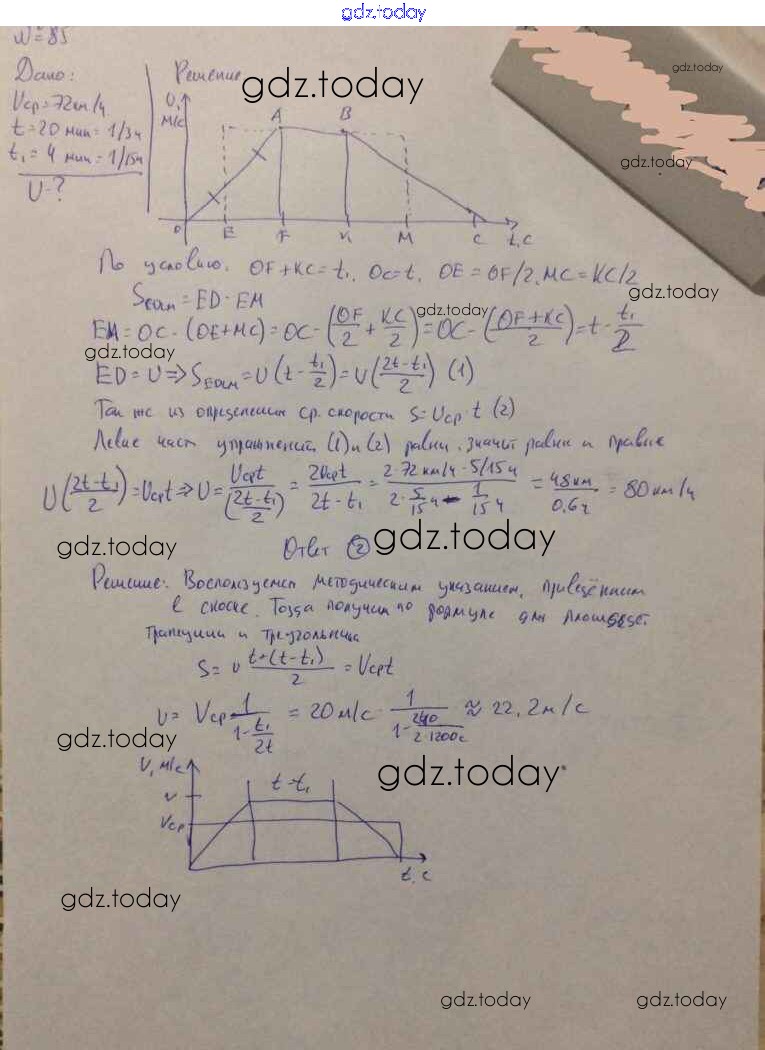 gdz.today
N=85
Дано: Решение
Vср=72км/ч
t=20 мин=1/3ч
t₁=4 мин=1/15ч
U-?
U, м/с
A B
O E F K M C t, с
gdz.today
gdz.today
gdz.today
По условию, OF+KC=t₁, OC=t, OE=OF/2, MC=KC/2
gdz.today
S = ED·EM
EM=OC-(OE+MC)=OC-(OF/2+KC/2)=OC-((OF+KC)/2)=t-t₁/2
gdz.today
gdz.today
ED=U⇒S =U(t-t₁/2)=U((2t-t₁)/2) (1)
Так же из определения ср. скорости S=Uср·t (2)
Левые част (1) и (2) равны, значит равны и правые
U((2t-t₁)/2)=Uсрt⇒U=Uсрt/((2t-t₁)/2)=2Uсрt/(2t-t₁)=(2·72км/ч·5/15ч)/(2·5/15ч-1/15ч)=48км/0,6ч=80км/ч
gdz.today
Ответ 2 gdz.today
Решение: Воспользуемся методическим указанием, приведённым
в сноске. Тогда получим по формуле для площадей
трапеции и треугольника
S=υ(t+(t-t₁))/2=Vсрt
υ=Vср·1/(1-t₁/2t)=20м/с·1/(1-240/2·1200с)≈22,2м/с
gdz.today
V, м/с
t-t₁
υ
Vср
t, с
gdz.today
gdz.today
gdz.today
gdz.today